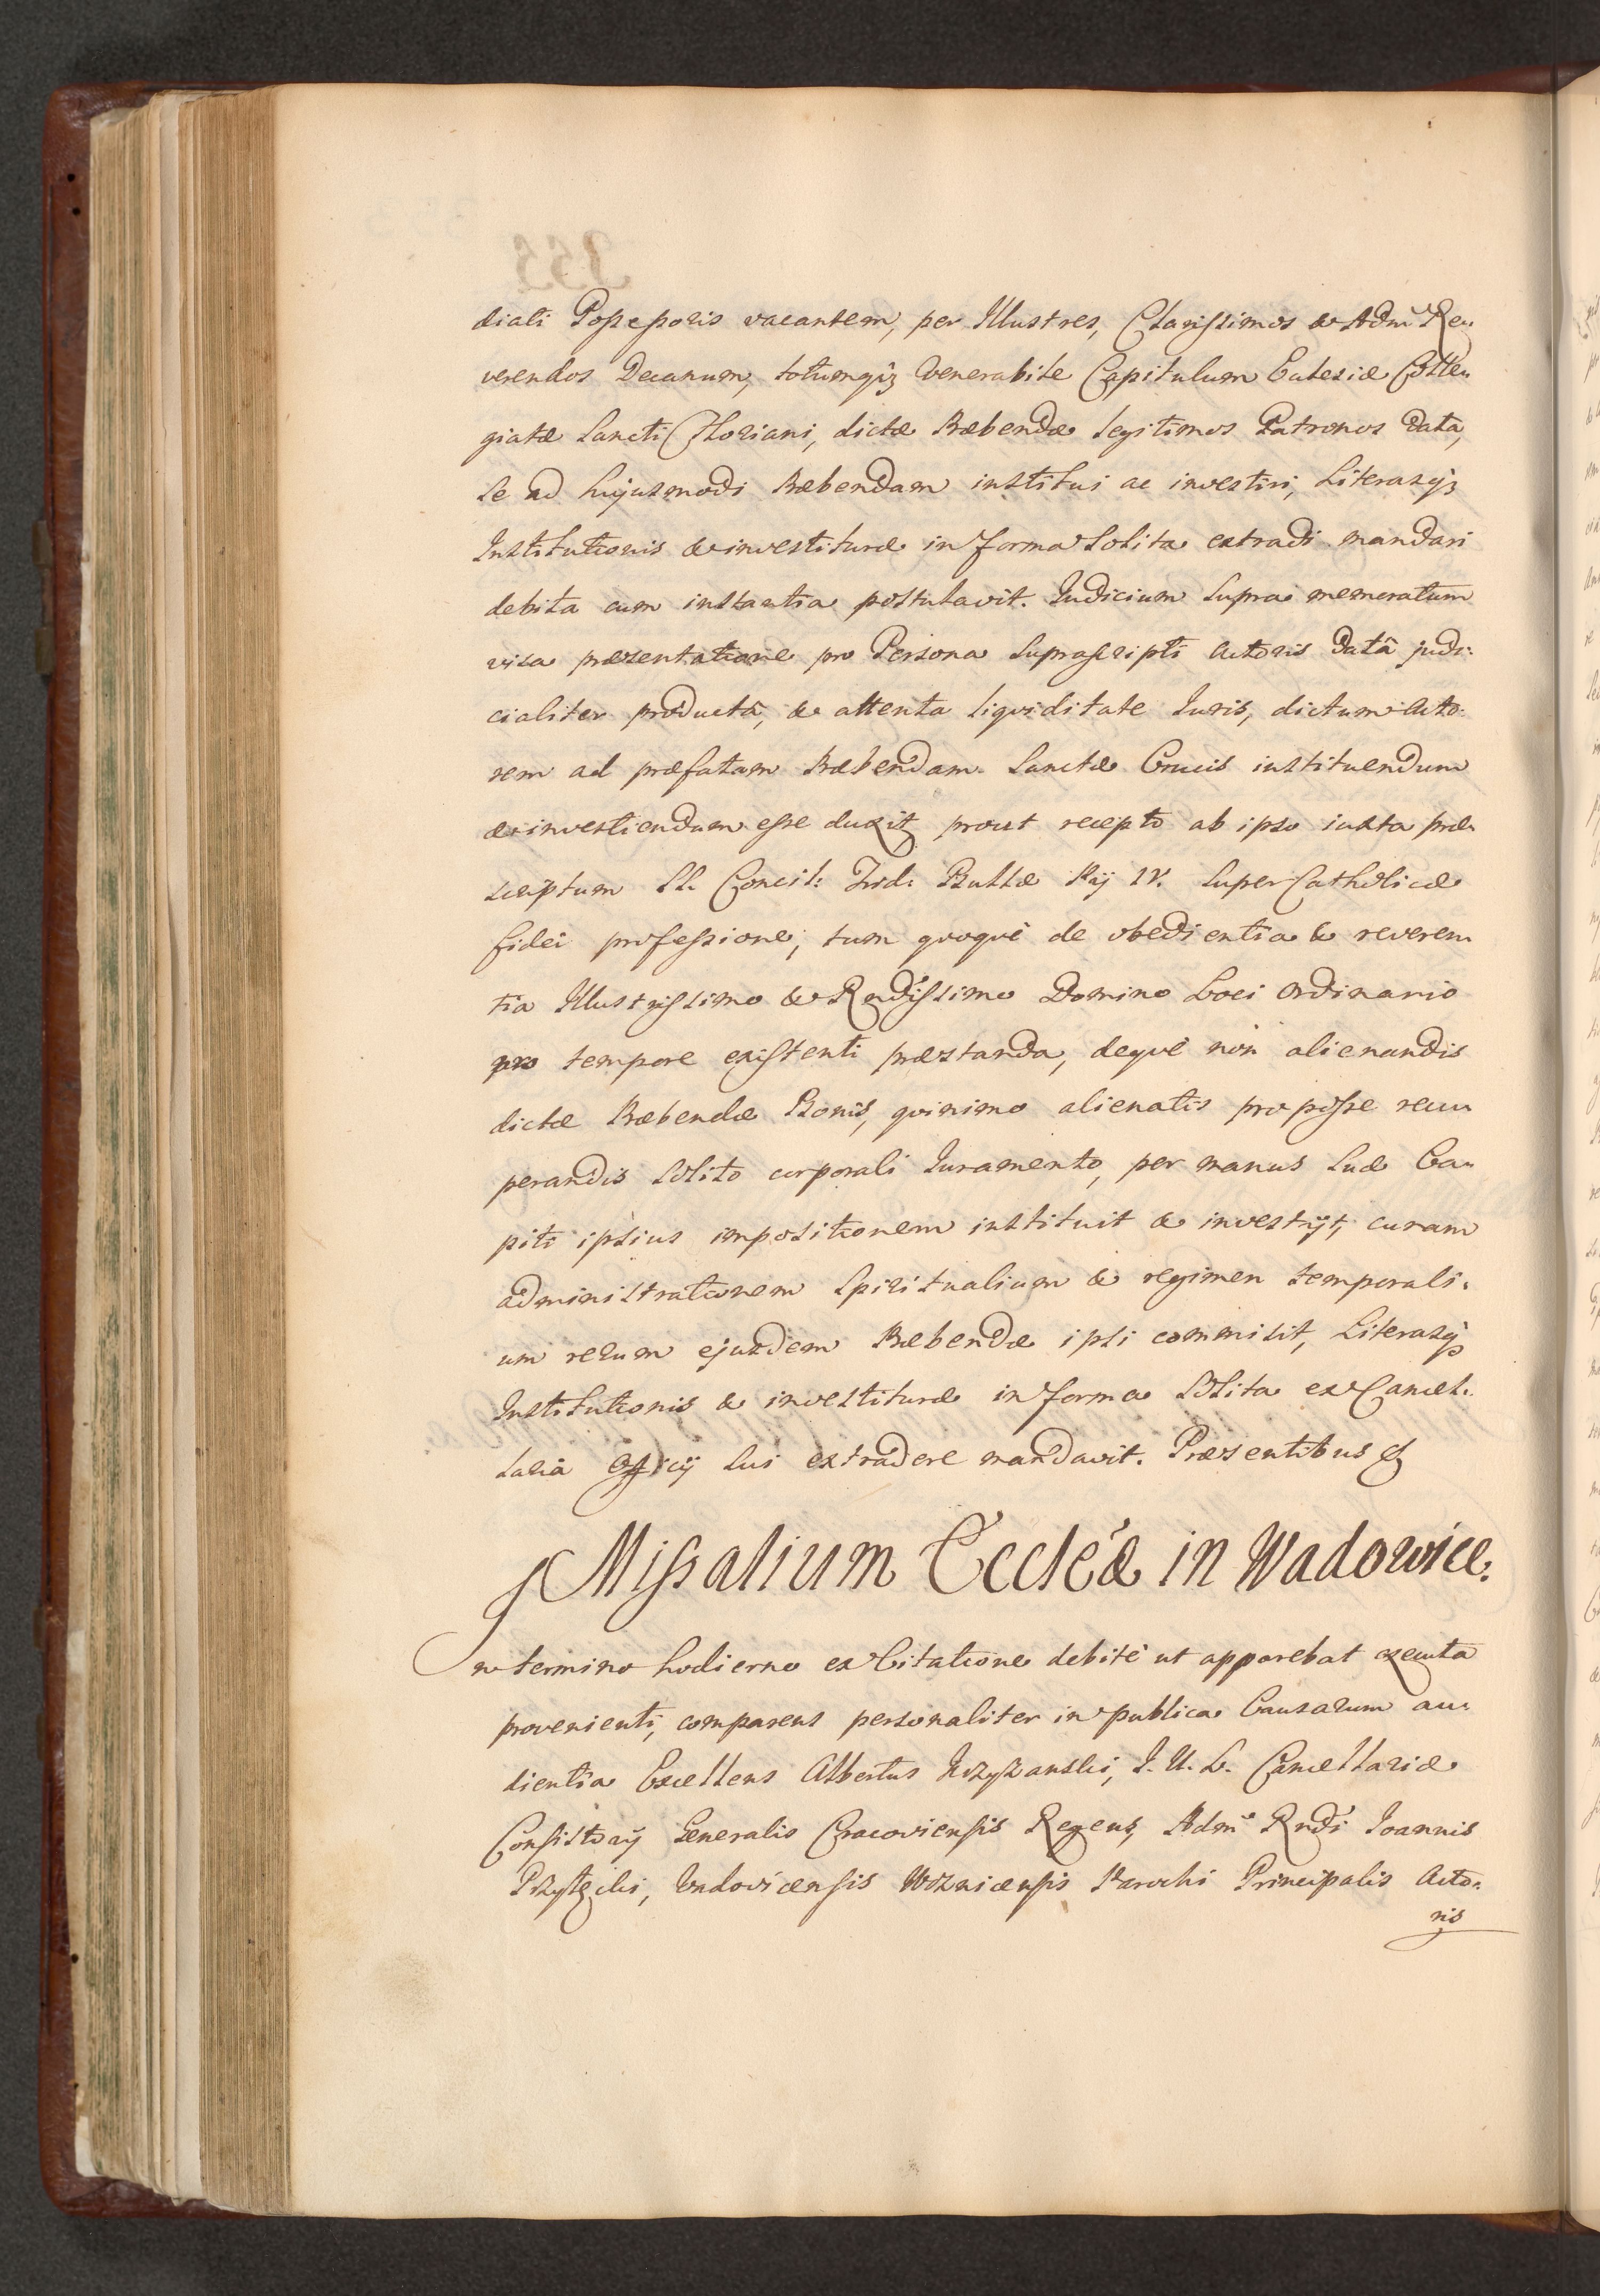 diali Possessoris vacantem, per Illustres, Clarissimos & Adm Re-
verendos Decanum, totumq3 Venerabile Capitulum Eclesiæ Colle-
giatæ Sancti Floriani, dictæ Præbendæ legitimos Patronos data,
se ad hujusmodi Præbendam institui ac investiri, Literasq3
Institutionis & investituræ in forma solita extradi mandari
debita cum instantia postulavit. Iudicium supra memoratum
visa præsentatione pro Persona suprascripti Actoris datâ judi-
cialiter productâ, & attenta liqviditate Iuris, dictum Acto-
rem ad præfatam Præbendam Sanctæ Crucis instituendum
& investiendum esse duxit, prout recepto ab ipso iuxta præ-
scriptum SS. Concil: Trid: Bullæ Pij IV. super Catholicæ
fidei professione, tum qvoqvè de obedientia & reveren-
tia Illustrissimo & Rndissimo Domino Loci Ordinario
pro tempore existenti præstanda, deqvè non alienandis
dictæ Præbendæ Bonis, qvinimo alienatis pro posse recu-
perandis solito corporali Iuramento, per manus suæ Ca-
piti ipsius impositionem instituit & investijt, curam
administrationem spiritualium & regimen temporali-
um rerum ejusdem Præbendæ ipsi commisit, Literasq3
Institutionis & investituræ in forma solita ex Cancel-
laria Officij sui extradere mandavit. Præsentibus &
Missalium Ecclæ in Wadowice.
In termino hodierno ex Citatione debitè ut apparebat executa
provenienti, comparens personaliter in publica Causarum au-
dientia Excellens Albertus Krzyżanski, I. U. L. Cancellariæ
Consistorij Generalis Cracoviensis Regens, Adm Rndi Ioannis
Wadovicensis Woznicensis Parochi Principalis Acto-
ris